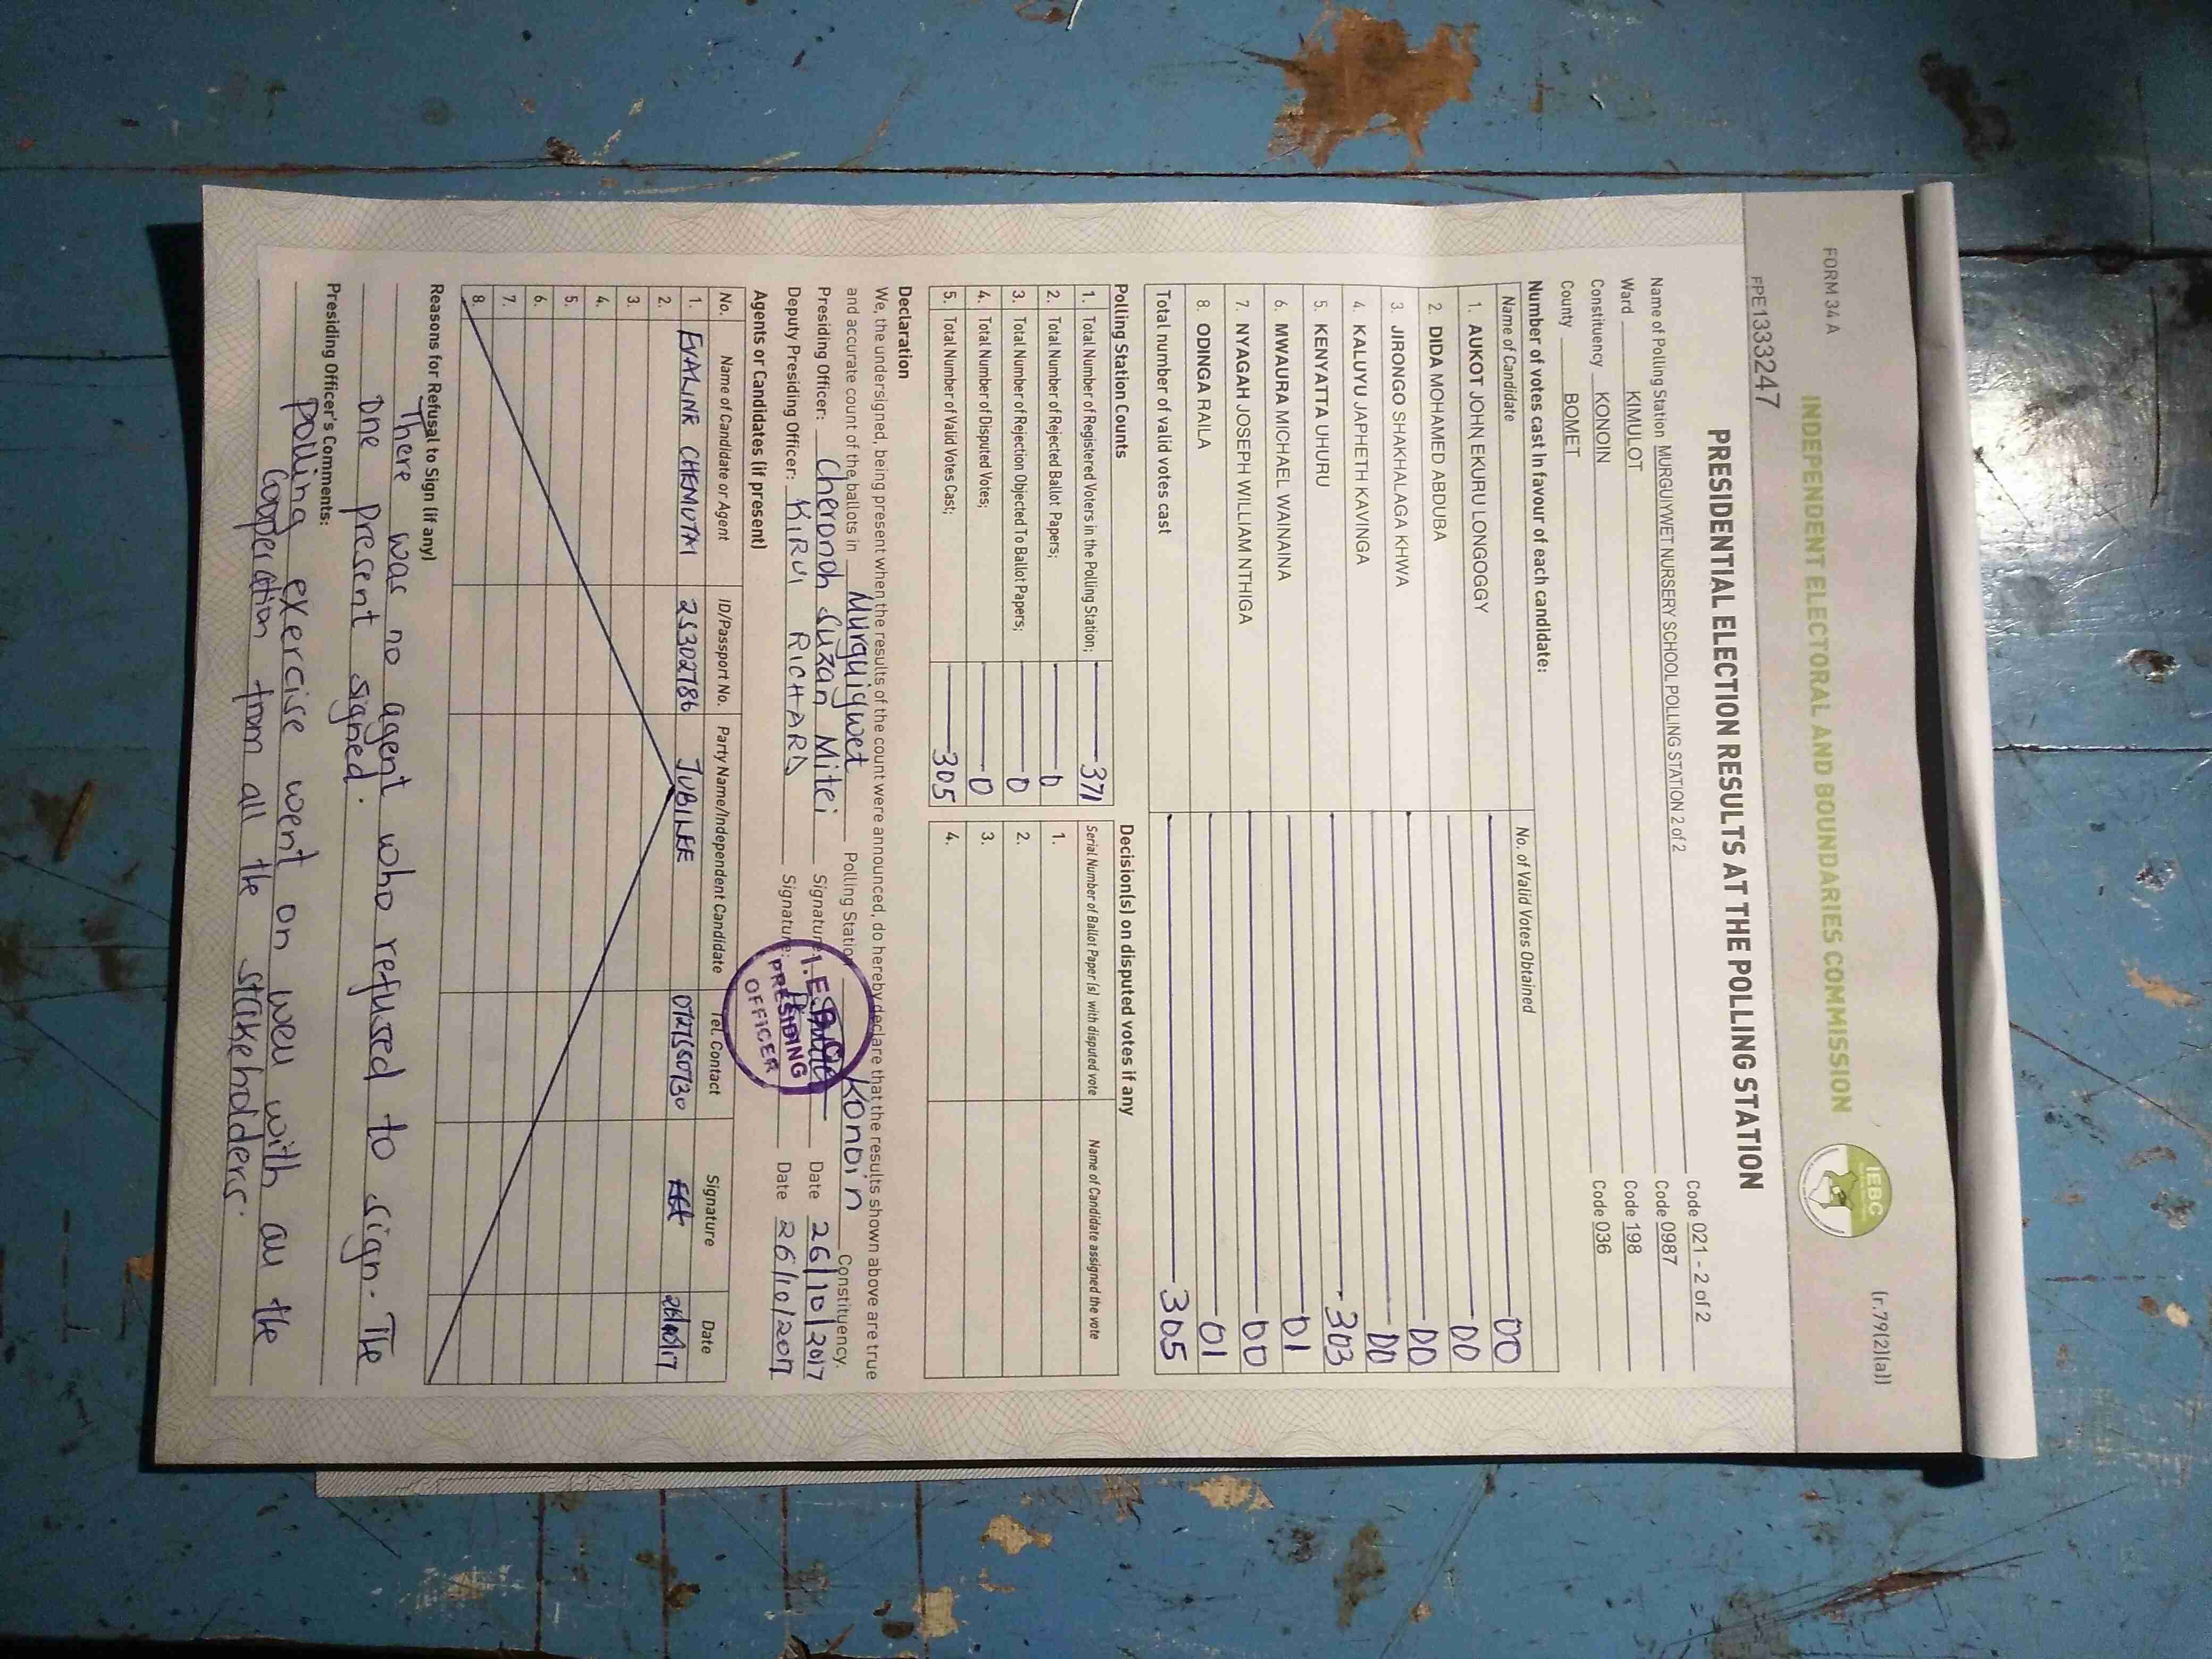 FORM 34 A
(r.79(2)(a))
INDEPENDENT ELECTORAL AND BOUNDARIES COMMISSION
IEBC
FPE1333247
PRESIDENTIAL ELECTION RESULTS AT THE POLLING STATION
Name of Polling Station MURGUIYWET NURSERY SCHOOL POLLING STATION 2 of 2 Code 021 - 2 of 2
Ward KIMULOT Code 0987
Constituency KONOIN Code 198
County BOMET Code 036
Number of votes cast in favour of each candidate:
Name of Candidate No. of Valid Votes Obtained
1. AUKOT JOHN EKURU LONGOGGY 00
2. DIDA MOHAMED ABDUBA 00
3. JIRONGO SHAKHALAGA KHWA 00
4. KALUYU JAPHETH KAVINGA 00
5. KENYATTA UHURU 303
6. MWAURA MICHAEL WAINAINA 01
7. NYAGAH JOSEPH WILLIAM NTHIGA 00
8. ODINGA RAILA 01
Total number of valid votes cast 305
Polling Station Counts
1. Total Number of Registered Voters in the Polling Station; 371
2. Total Number of Rejected Ballot Papers; 0
3. Total Number of Rejection Objected To Ballot Papers; 0
4. Total Number of Disputed Votes; 0
5. Total Number of Valid Votes Cast; 305
Decision(s) on disputed votes if any
Serial Number of Ballot Paper(s) with disputed vote Name of Candidate assigned the vote
1.
2.
3.
4.
Declaration
We, the undersigned, being present when the results of the count were announced, do hereby declare that the results shown above are true
and accurate count of the ballots in Murguiywet Polling Station Konoin Constituency.
Presiding Officer: Cheronoh Suzan Mitei Signature Date 26/10/2017
Deputy Presiding Officer: KIRUI RICHARD Signature: Date 26/10/2017
I.E.B.C
PRESIDING
OFFICER
Agents or Candidates (if present)
No. Name of Candidate or Agent ID/Passport No. Party Name/Independent Candidate Tel. Contact Signature Date
1. EVALINE CHEMUTAI 25302786 JUBILEE
2.
3.
4.
5.
6.
7.
8.
Reasons for Refusal to Sign (if any)
There was no agent who refused to sign. The
one present signed.
Presiding Officer's Comments:
polling exercise went on well with all the
cooperation from all the stakeholders.